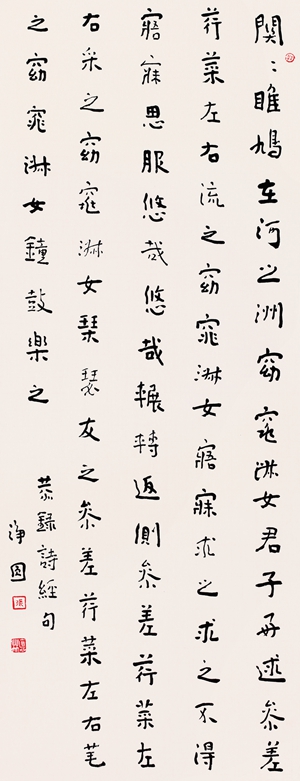 関〻雎鳩在河之洲窈窕淋女君子好逑參差
荇菜左右流之窈窕淋女寤寐求之求之不得
寤寐思服悠哉悠哉輾轉返側參差荇菜左
右采之窈窕淋女琴瑟友之參差荇菜左右芼
之窈窕淋女鐘鼓樂之
恭錄詩經句
淨因